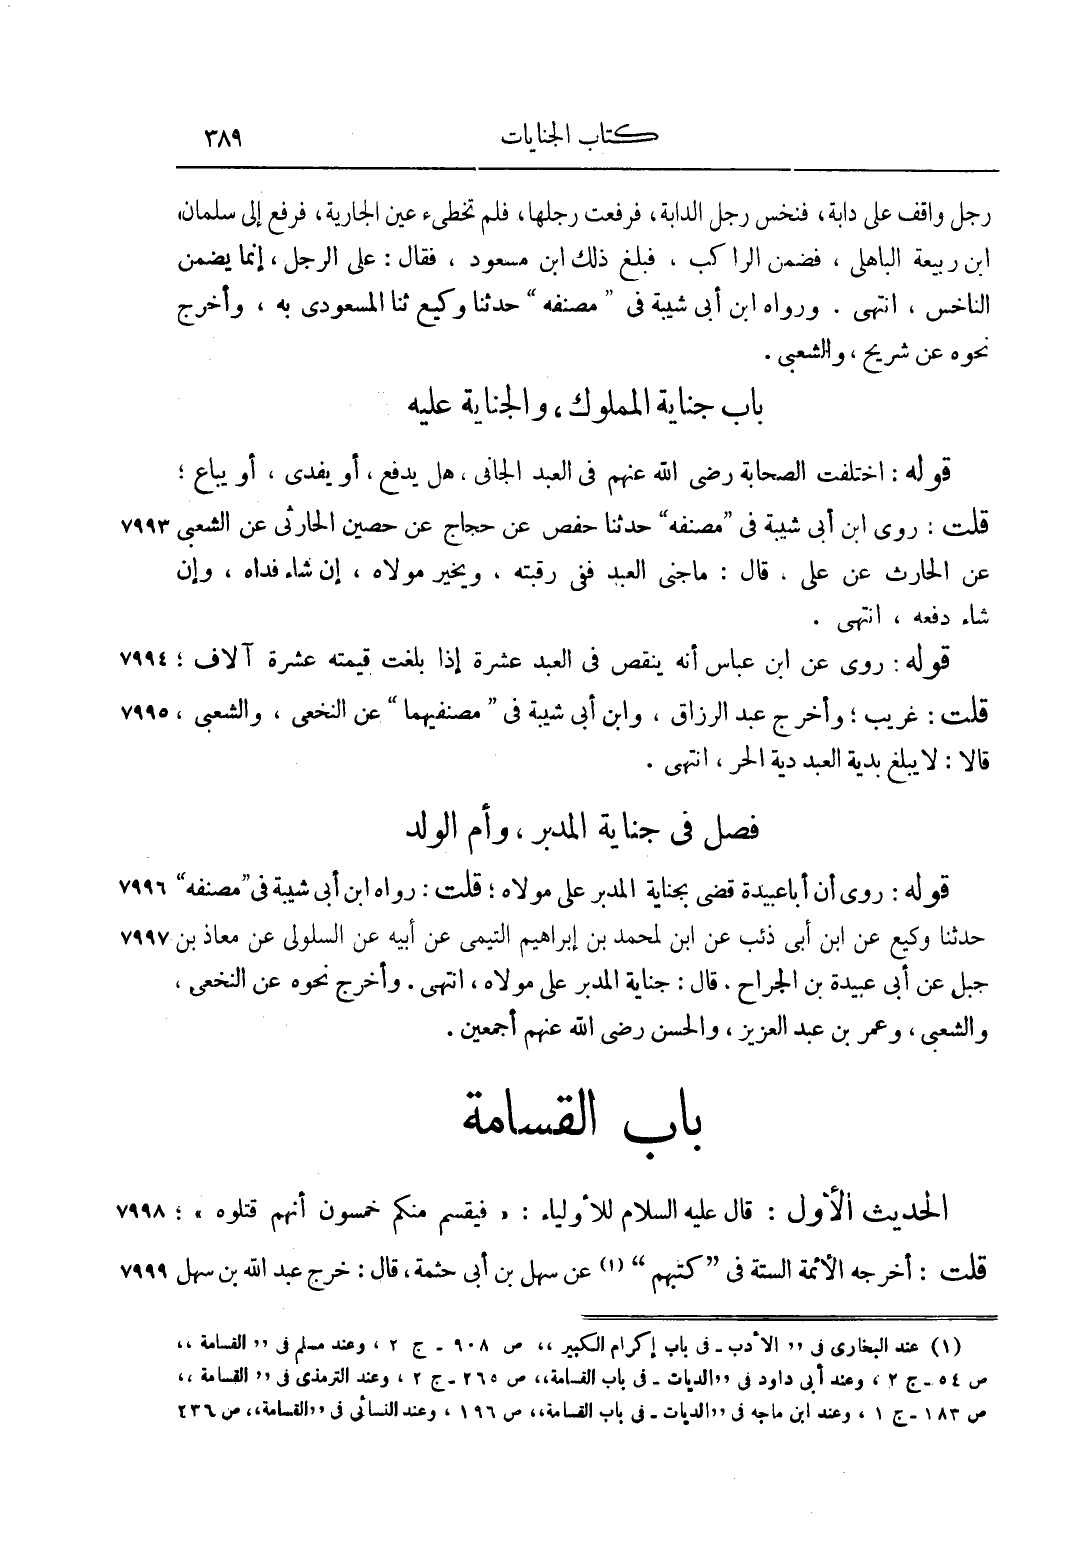 كتاب الجنايات ٣٨٩
رجل واقف على دابة، فنخس رجل الدابة، فرفعت رجلها، فلم تخطىء عين الجارية، فرفع إلى سلمان،
ابن ربيعة الباهلى ، فضمن الراكب ، فبلغ ذلك ابن مسعود ، فقال : على الرجل ، إنما يضمن
الناخس ، انتهى . ورواه ابن أبى شيبة فى ” مصنفه “ حدثنا وكيع ثنا المسعودى به ، وأخرج
نحوه عن شريح ، والشعبى .
باب جناية المملوك ، والجناية عليه
قوله : اختلفت الصحابة رضى الله عنهم فى العبد الجانى ، هل يدفع ، أو يفدى ، أو يباع ؛
قلت : روى ابن أبى شيبة فى ”مصنفه“ حدثنا حفص عن حجاج عن حصين الحارثى عن الشعبى ٧٩٩٣
عن الحارث عن على ، قال : ماجنى العبد ففى رقبته ، ويخير مولاه ، إن شاء فداه ، وإن
شاء دفعه ، انتهى .
قوله : روى عن ابن عباس أنه ينقص فى العبد عشرة إذا بلغت قيمته عشرة آلاف ؛ ٧٩٩٤
قلت : غريب ؛ وأخرج عبد الرزاق ، وابن أبى شيبة فى ” مصنفيهما “ عن النخعى ، والشعبى ، ٧٩٩٥
قالا : لا يبلغ بدية العبد دية الحر ، انتهى .
فصل فى جناية المدبر ، وأم الولد
قوله : روى أن أبا عبيدة قضى بجناية المدبر على مولاه ؛ قلت : رواه ابن أبى شيبة فى ”مصنفه“ ٧٩٩٦
حدثنا وكيع عن ابن أبى ذئب عن ابن لمحمد بن إبراهيم التيمى عن أبيه عن السلولى عن معاذ بن ٧٩٩٧
جبل عن أبى عبيدة بن الجراح . قال : جناية المدبر على مولاه ، انتهى . وأخرج نحوه عن النخعى ،
والشعبى ، وعمر بن عبد العزيز ، والحسن رضى الله عنهم أجمعين .
باب القسامة
الحديث الأول : قال عليه السلام للأولياء : « فيقسم منكم خمسون أنهم قتلوه » ؛ ٧٩٩٨
قلت : أخرجه الأئمة الستة فى ”كتبهم“ (١) عن سهل بن أبى حثمة ، قال : خرج عبد الله بن سهل ٧٩٩٩
(١) عند البخارى فى ,, الأدب ـ فى باب إكرام الكبير ،، ص ٩٠٨ ـ ج ٢ ، وعند مسلم فى ,, القسامة ،،
ص ٥٤ ـ ج ٢ ، وعند أبى داود فى ,,الديات ـ فى باب القسامة،، ص ٢٦٥ ـ ج ٢ ، وعند الترمذى فى ,, القسامة ،،
ص ١٨٣ ـ ج ١ ، وعند ابن ماجه فى ,,الديات ـ فى باب القسامة،، ص ١٩٦ ، وعند النسائى فى ,,القسامة،، ص ٢٣٦